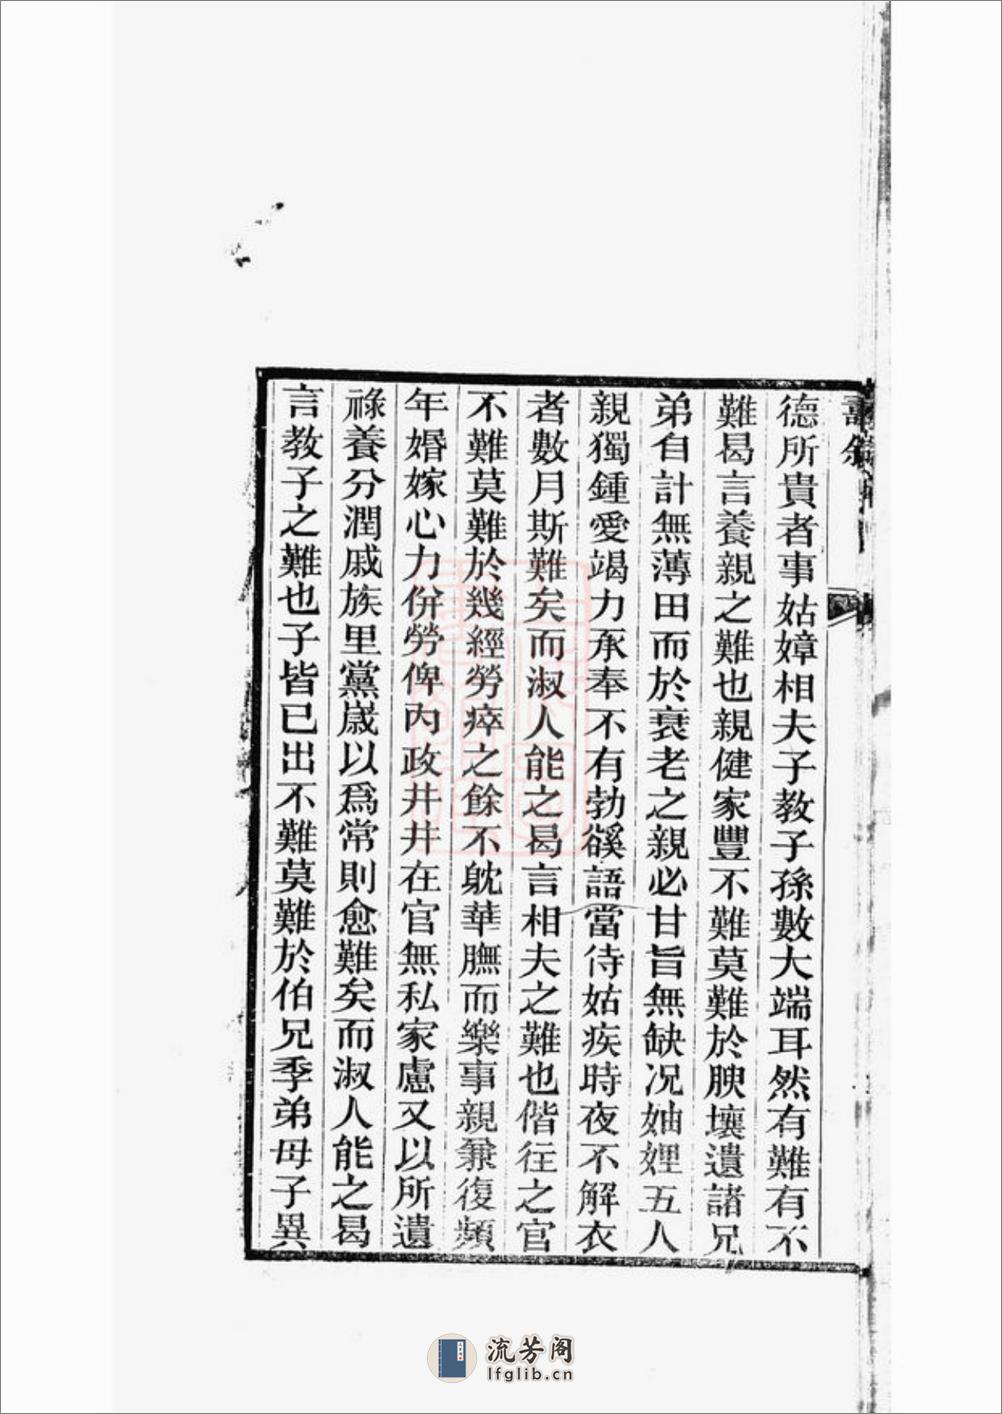 壽敘
德所貴者事姑嫜相夫子教子孫數大端耳然有難有不
難曷言養親之難也親健家豐不難莫難於腴壤遺諸兄
弟自計無薄田而於衰老之親必甘旨無缺况妯娌五人
親獨鍾愛竭力承奉不有勃豀語當待姑疾時夜不解衣
者數月斯難矣而淑人能之曷言相夫之難也偕往之官
不難莫難於幾經勞瘁之餘不躭華膴而樂事親兼復頻
年婚嫁心力併勞俾内政井井在官無私家慮又以所遺
祿養分潤戚族里黨嵗以爲常則愈難矣而淑人能之曷
言教子之難也子皆已出不難莫難於伯兄季弟母子異
流芳阁
lfglib.cn